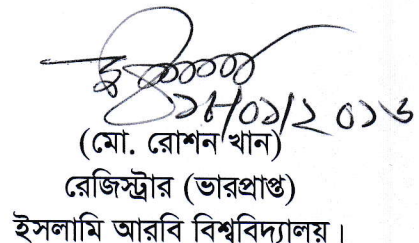 (মো. রোশন খান)
রেজিস্ট্রার (ভারপ্রাপ্ত)
ইসলামি আরবি বিশ্ববিদ্যালয়।